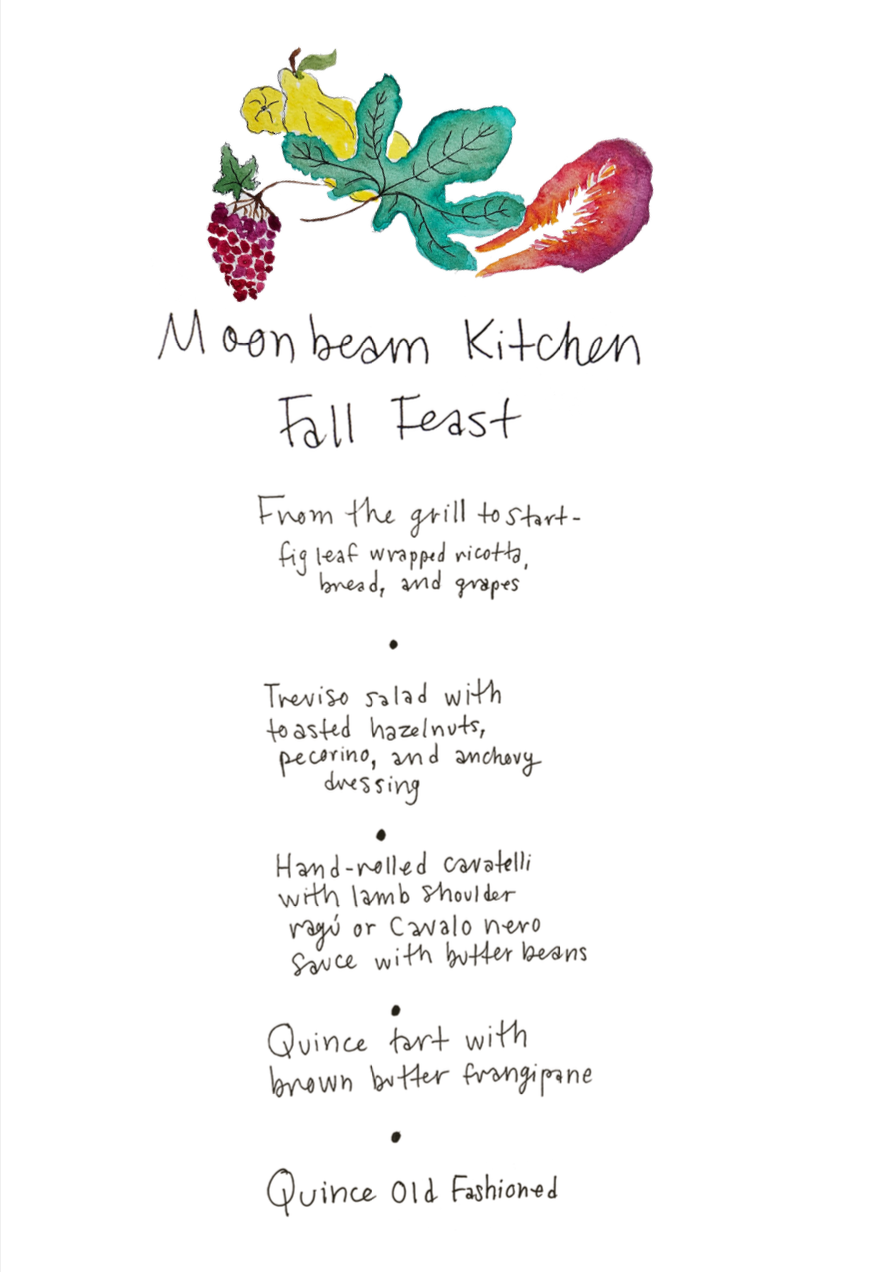 Moonbeam Kitchen
Fall Feast
From the grill to start-
fig leaf wrapped ricotta,
bread, and grapes
•
Treviso salad with
toasted hazelnuts,
pecorino, and anchovy
dressing
•
Hand-rolled cavatelli
with lamb shoulder
ragú or Cavalo nero
sauce with butter beans
•
Quince tart with
brown butter frangipane
•
Quince Old Fashioned